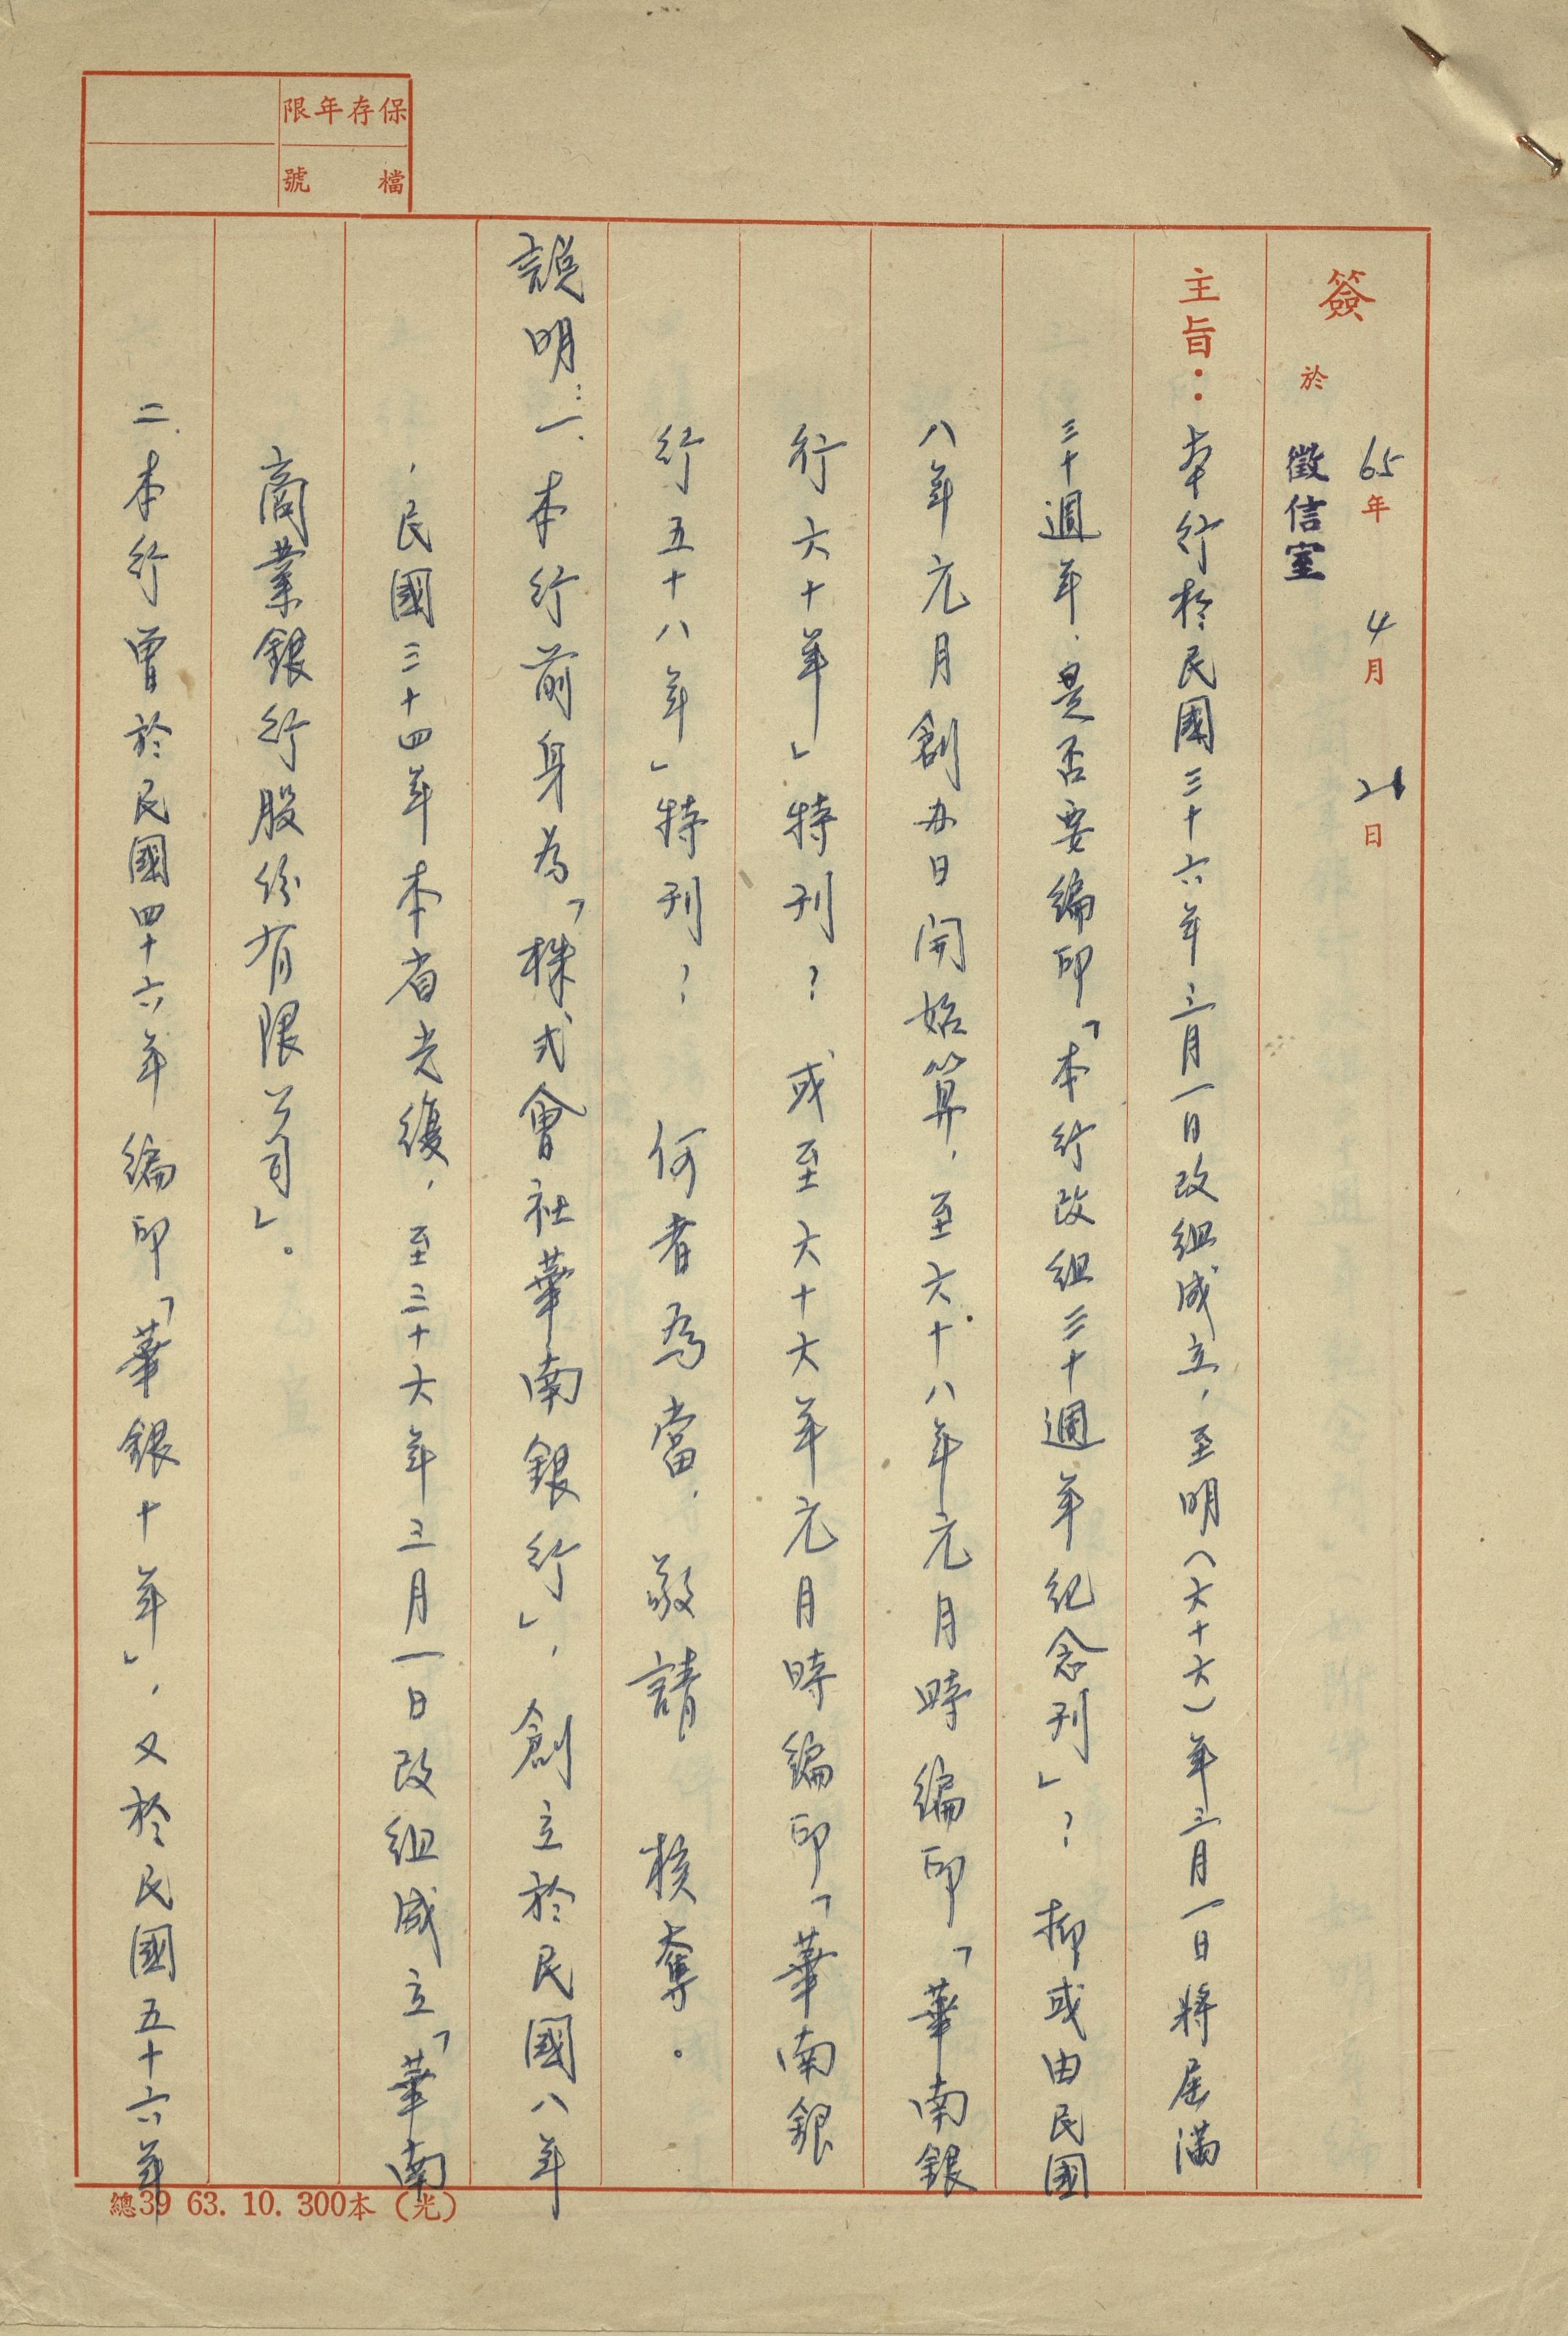 保存年限
檔號
簽
65年4月26日
於
徵信室
主旨：本行於民國三十六年三月一日改組成立，至明(六十六)年三月一日將屆滿
三十週年，是否要編印「本行改組三十週年紀念刊」？抑或由民國
八年元月創办日開始算，至六十八年元月時編印「華南銀
行六十年」特刊？或至六十六年元月時編印「華南銀
行五十八年」特刊？何者為當，敬請核奪。
說明：一、本行前身為「株式會社華南銀行」，創立於民國八年
，民國三十四年本省光復，至三十六年三月一日改組成立「華南
商業銀行股份有限公司」。
二、本行曾於民國四十六年編印「華銀十年」，又於民國五十六年
總39 63. 10. 300本（光）